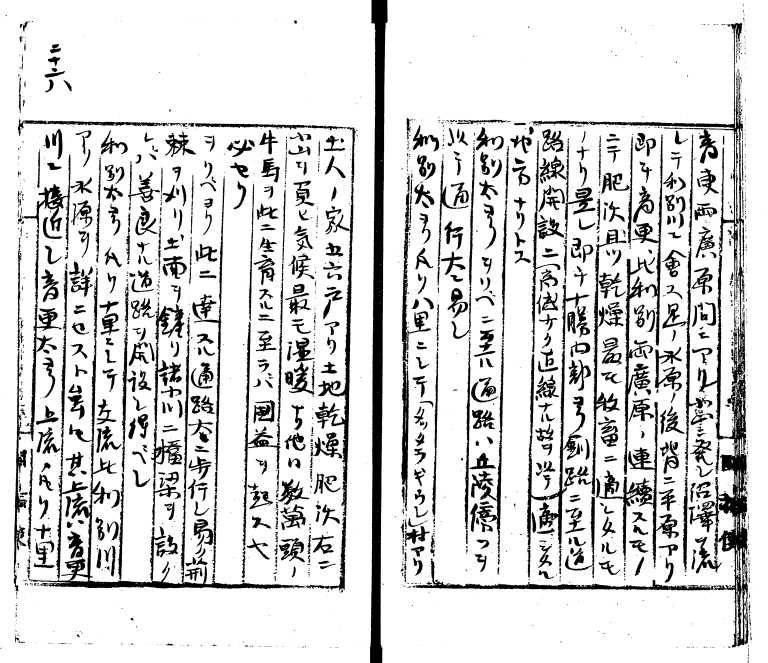 音更両廣原間ニアリ
シテ利別川ニ會ス是ノ水原ノ後背ニ平原アリ
即チ音更、比利別両廣原ノ連續スルモノ
ニテ肥沃且ツ乾燥最モ牧畜ニ適シタルモ
ノナリ是レ即チ十勝内部ヨリ釧路ニ至ル道
路線開設ニ高低ナク直線ナル故ヲ以テ適シタル
地方ナリトス
利別太ヨリヲリベニ至ル通路ハ丘陵傳フヲ
以テ通行大ニ易シ
利別太ヨリ凡ソ八里ニシテ 村アリ
土人ノ家五六戸アリ土地乾燥肥沃右ニ
山ヲ負ヒ気候最モ温暖 他日数萬頭ノ
牛馬ヲ此ニ生育スルニ至ラバ国益ヲ起スヤ
必セリ
ヲリベヨリ此ニ達スル通路ハ歩行シ易ク荊
棘ヲ刈リ土面ヲ鏟リ諸小川ニ橋梁ヲ設ク
レバ善良ナル道路ヲ開設シ得ベシ
利別太ヨリ凡ソ十里ニシテ左流比利別川
アリ水源ヲ詳ニセスト雖モ其上流ハ音更
川ニ接近シ音更太ヨリ上流凡ソ十里
二十六